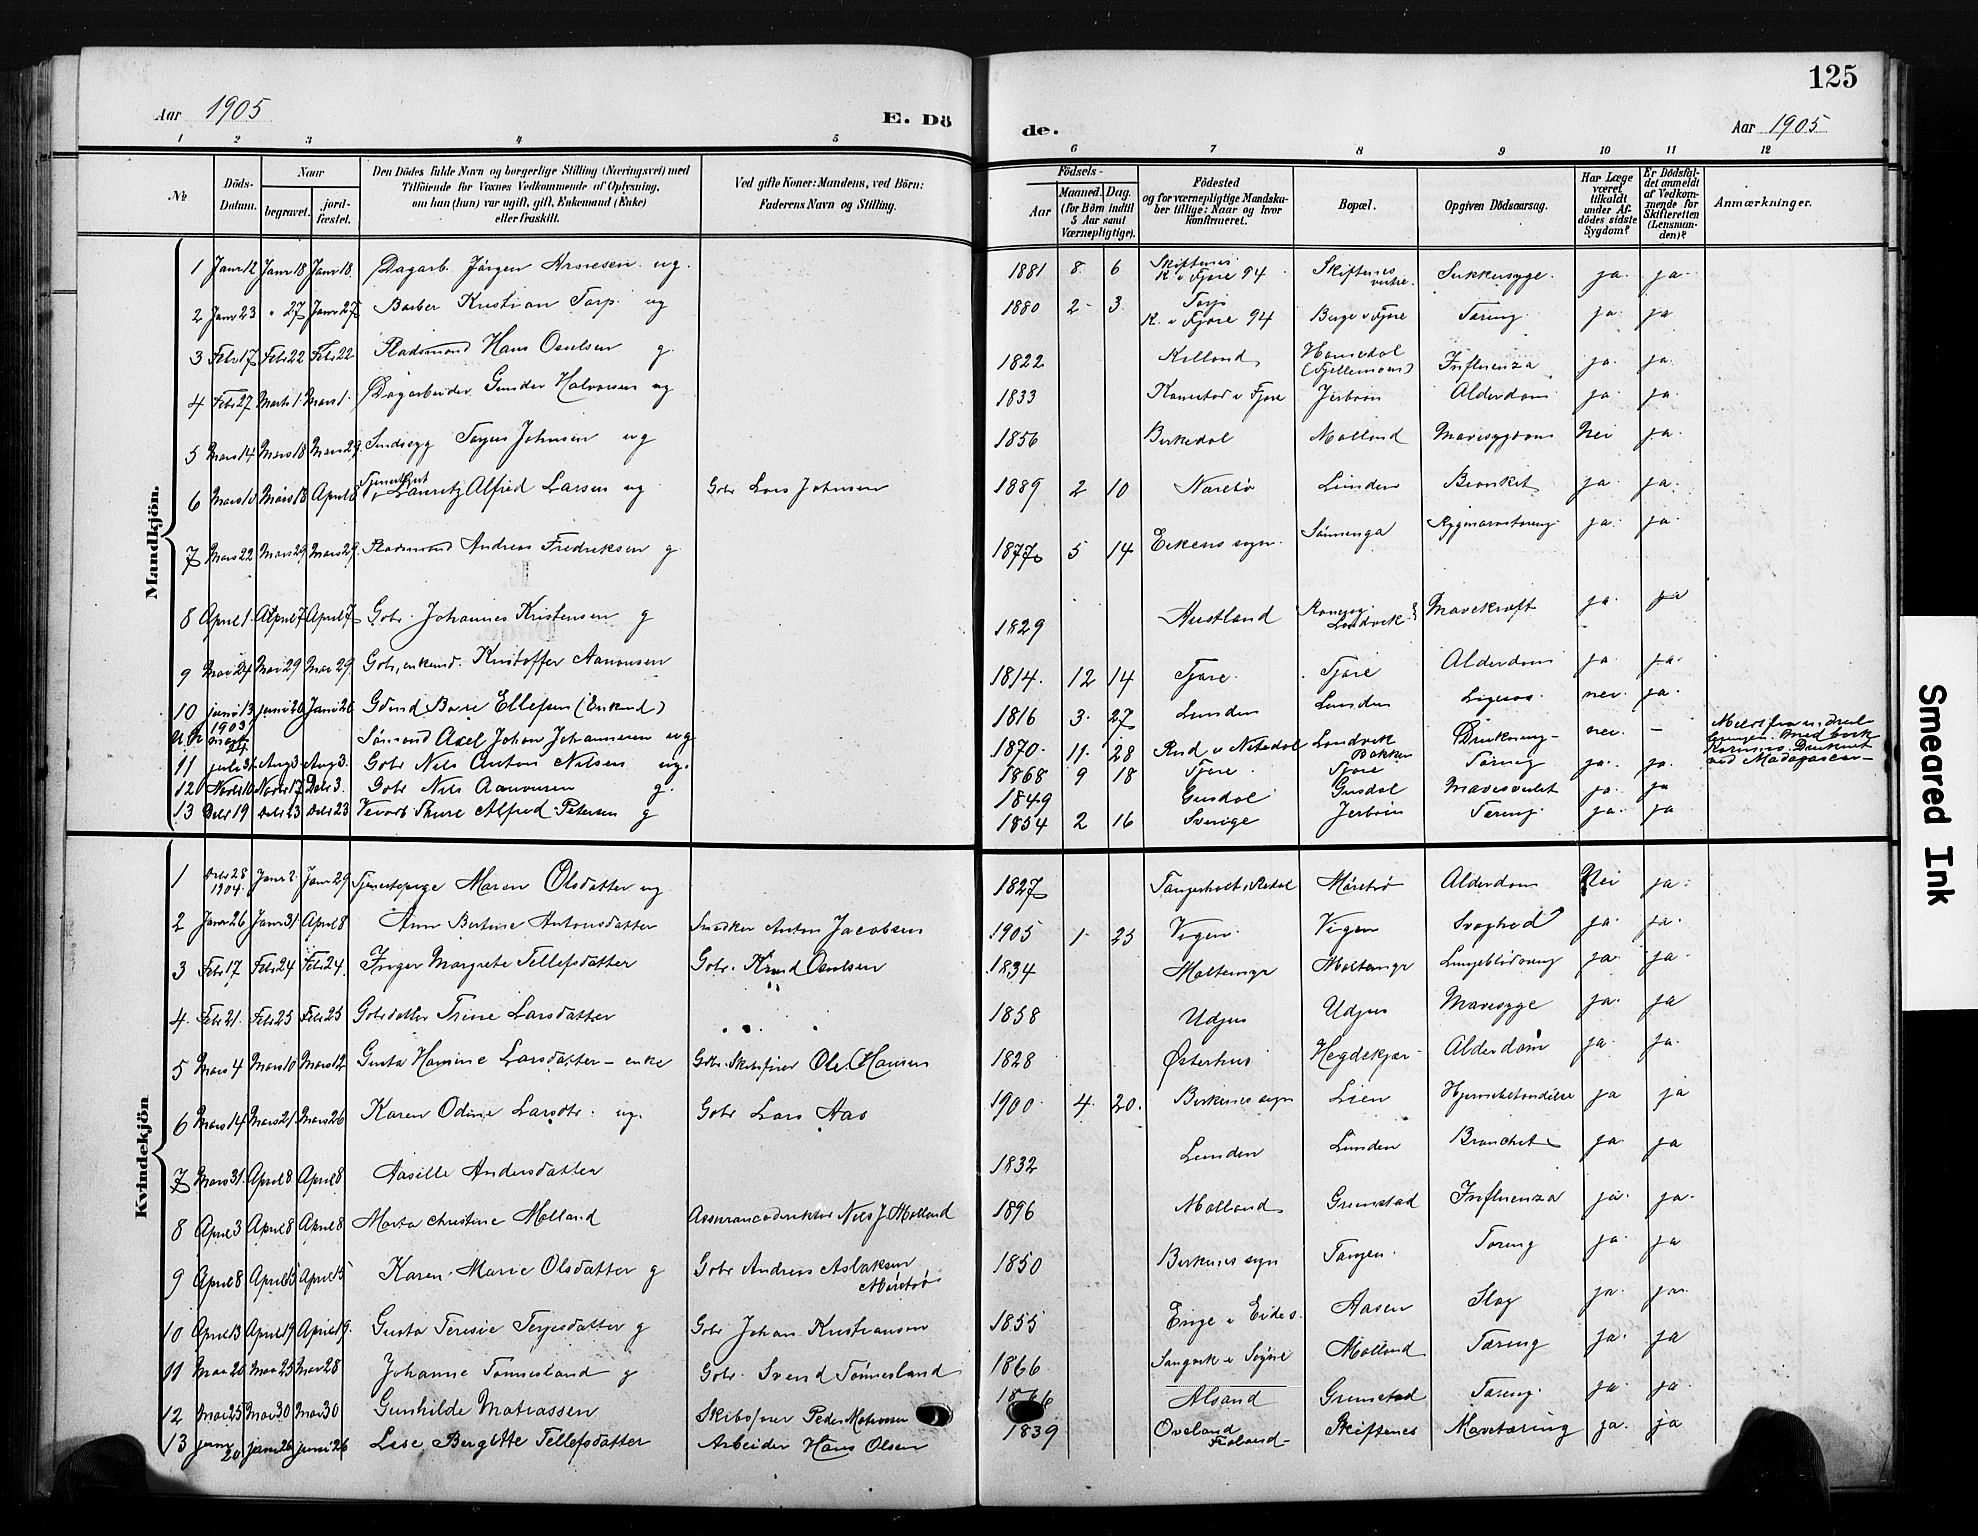 125
Aar 1905
E. Dö
de.
Aar 1905
1 2 3 4 5 6 7 8 9 10 11 12
№
Döds-Datum.
Naar
begravet.
jord-fæstet.
Den Dödes fulde Navn og borgerlige Stilling (Næringsvei) med
Tilföiende for Voxnes Vedkommende af Oplysning,
om han (hun) var ugift, gift, Enkemand (Enke)
eller fraskilt.
Ved gifte Koner: Mandens, ved Börn:
Faderens Navn og Stilling.
Födsels-
Aar
Maaned. Dag.
(for Börn indtil
5 Aar samt
Værnepligtige).
Födested
og for værnepligtige Mandska-
ber tillige: Naar og hvor
konfirmeret.
Bopæl.
Opgiven Dödsaarsag.
Har Læge
været
tilkaldt
under Af-
dödes sidste
Sygdom?
Er Dödsfal-
det anmeldt
af Vedkom-
mende for
Skifteretten
(Lensman-
den)?
Anmærkninger.
Mandkjön.
1 Janr 12 Janr 18 Janr 18 Dagarb. Jørgen Arnesen ug. 1881 8 6 Skiftenes K. i Fjære 94 Skiftenes vestre Sukkersyge. ja. ja.
2 Janr 23 " 27 Janr 27 Barber Kristian Torp. ug 1880 2 3 Torp K. i Fjære 94 Berge i Fjære Tæring. ja. ja
3 Febr 17 Febr 22 Febr 22 Pladsmand Hans Osulsen g. 1822 Kalland Homedal (Fjellemoen) Influenza ja. ja.
4 Febr 27 Marts 1. Mars 1. Dagarbeider Gunder Halvorsen ug 1833 i Fjære Jerbron Alderdom ja. ja.
5 Mars 14 Mars 18 Mars 29. Sindssyg Torjus Johnsen ug 1856 Birkedal Molland Mavesygdom Nei ja.
6 Mars 10 Mars 18 April 8 Tjenestegut Lauritz Alfred Larsen ug Gbr Lars Johnsen 1889 2 10 Narestø Lunden Bronkit ja. ja.
7 Mars 22 Mars 29 Mars 29. Pladsmand Andreas Fredriksen g 1877 5 14 Eikens sogn. Sønnenga Rygmarvstæring ja. ja.
8 April 1. April 7 April 7 Gbr. Johannes Kristensen g 1829 Austland Landvik Mavekræft ja. ja
9 Mai 24 Mai 29 Mai 29. Gbr, enkemd. Kristoffer Aanonsen 1814. 12 14 Fjære. Fjære Alderdom ja. ja.
10 juni 13 juni 20 Juni 26 Gdmd Boye Ellefsen (Enkemd) 1816 3. 27 Lunden Lunden nei. ja.
1903 24 Sømand Axel Johan Johannesen ug 1870. 11. 28 Landvik Bakken Drukning nei. — ved Madagascar
11 juli 31. Aug 3. Aug 3. Gbr Nils Anton Nilsen ug. 1868 9 18 Fjære. Fjære Tæring ja. ja.
12 Novbr 10 Novbr 17 Debr 3. Gbr Nils Aanonsen g. 1849 Gusdal Gusdal Mavesvulst ja. ja
13 Debr 19 Debr 23 Debr 23 Thure Alfred Petersen g 1854 2 16 Sverige Jerbron Tæring ja. ja
Kvindekjön
1 Debr 28 1904. Janr 2. Janr 29 Tjenestepige Maren Olsdatter ug 1827 Møretrø Alderdom Nei ja.
2 Janr 26 Janr 31 April 8 Ann Bertine Antonsdatter Snedker Anton Jacobsen 1905 1. 25 Vigen. Vigen Svaghed ja. ja.
3 Febr 17 Febr 24 Febr 24. Inger Margrete Tellefsdatter Gbr. Knud Osulsen 1834 Moltemyr Moltemyr Lungeblødning ja. ja.
4. Febr 21. Febr 25 Febr 25 Gbrdatter Trine Larsdatter 1858 Udjus Udjus Mavesyge ja. ja
5 Mars 4 Mars 10 Mars 12 Gusta Hansine Larsdatter – enke Gbr. Skibsfører Ole Hansen 1828 Østerhus Hegdekjær Alderdom ja. ja.
6 Mars 14 Mars 21. Mars 26 Karen Odine Larsdtr. ug. Gbr Lars Aas 1900. 4. 20. Birkenes sogn Lien Hjernebetændelse ja ja
7 Mars 31. April 8 April 8 Aasille Andersdatter 1832 Lunden Lunden Bronchit ja. ja
8 April 3 April 8 April 8 Marta Christine Molland Assurancedirektør Nils J. Molland 1896 Molland Grimstad Influenza ja. ja.
9 April 8 April 15 April 15 Karen Marie Olsdatter g Gbr Andreas Aslaksen Møretrø 1850 Birkenes sogn Tangen. Tæring ja. ja
10 April 13 April 19 April 19. Gusta Teresie Terjesdatter g Gbr Johan Kristiansen 1855 Enge i Eide s. Aasen Slag ja. ja.
11 Mai 20 Mai 25 Mai 28 Johanne Tønnesland g Gbr. Svend Tønnesland 1866 i Søgne Molland Tæring ja. ja
12 Mai 25 Mai 30 Mai 30 Gunhilde Matiassen Skibsfører Peder Matiassen Alsand Grimstad Tæring. ja. ja
13 juni 20 juni 26 juni 26 Lise Bergitte Tellefsdatter Arbeider Hans Olsen 1839 Oveland Froland Skiftenes Mavetæring ja. ja
Smeared Ink